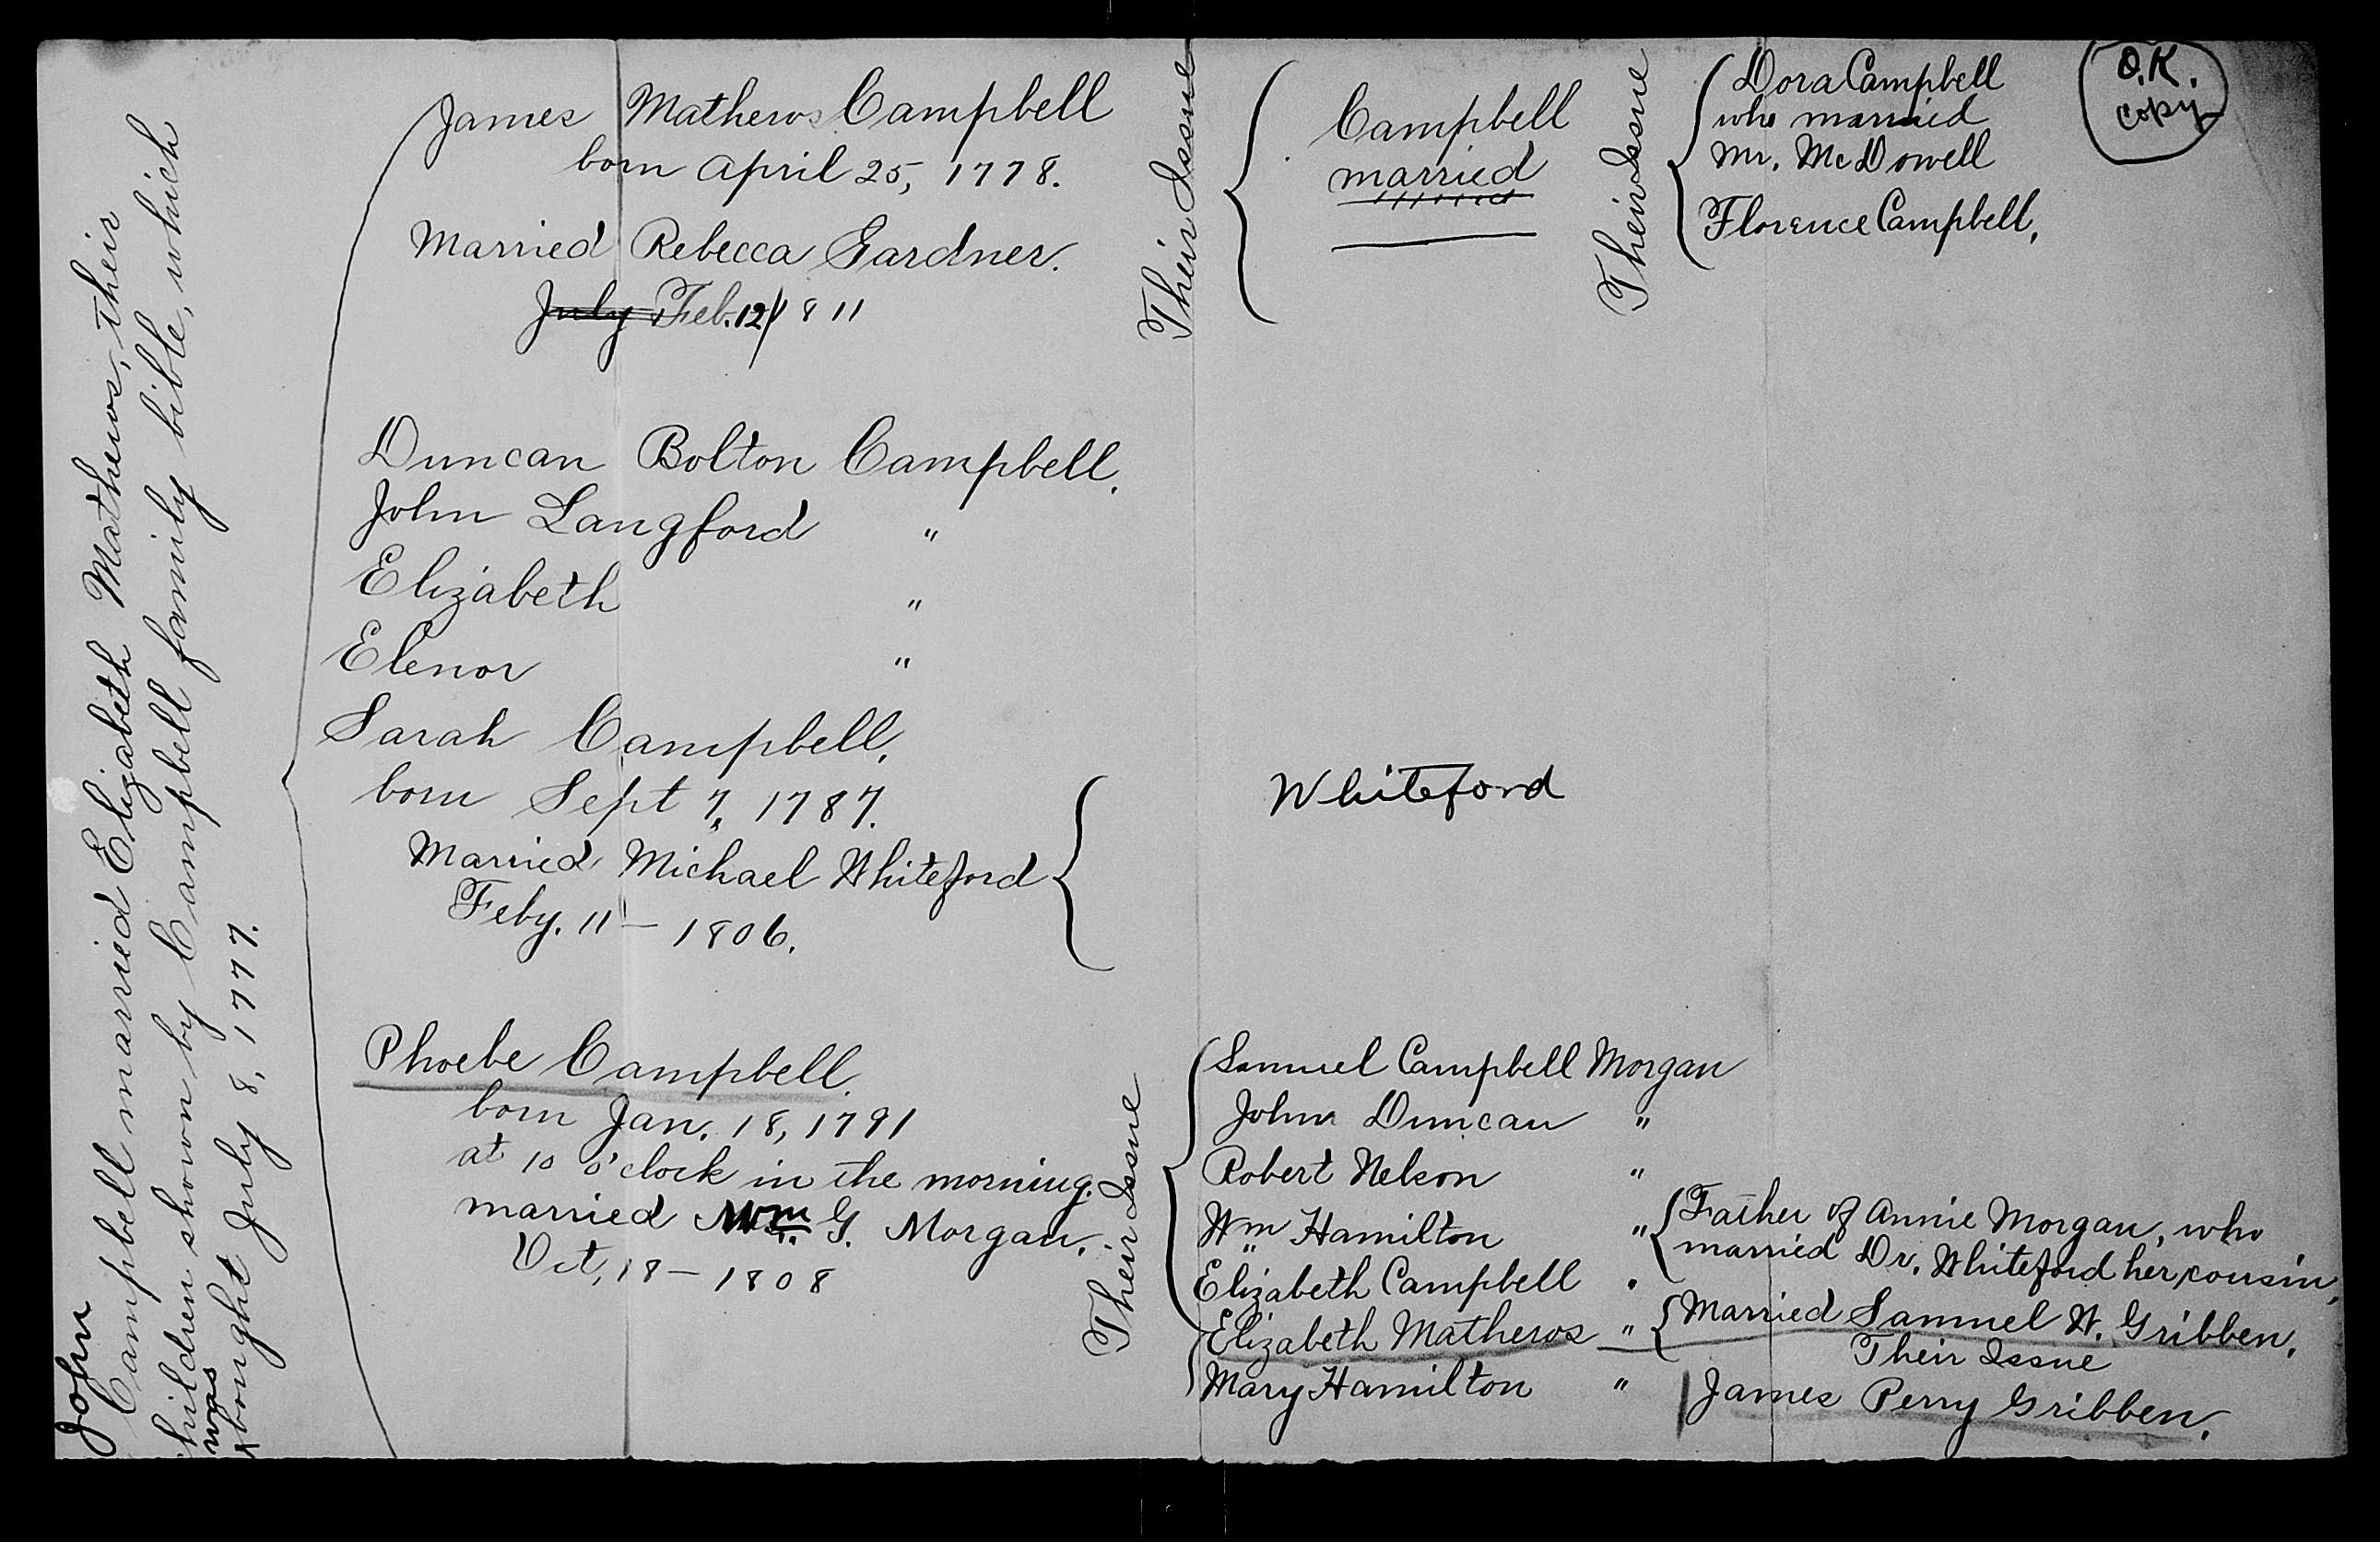 John
Campbell married Elizabeth Mathews, their
children shown by Campbell family bible, which
was
bought July 8, 1777.
James Mathews Campbell
born April 25, 1778.
Married Rebecca Gardner.
July Feb. 12/1811
Their Issue
Campbell
married
Their Issue
Dora Campbell
who married
Mr. McDowell
Florence Campbell,
O.K.
copy
Duncan Bolton Campbell.
John Langford "
Elizabeth "
Elenor "
Sarah Campbell,
born Sept 7, 1787.
Married Michael Whiteford
Feby. 11 — 1806.
Whiteford
Phoebe Campbell
born Jan. 18, 1791
at 10 o'clock in the morning.
married Wm. G. Morgan.
Oct, 18 — 1808
Their Issue
Samuel Campbell Morgan
John Duncan "
Robert Nelson "
Wm Hamilton "
Elizabeth Campbell "
Elizabeth Mathews "
Mary Hamilton "
Father of Annie Morgan, who
married Dr. Whiteford her cousin,
Married Samuel W. Gribben.
Their Issue
James Perry Gribben.